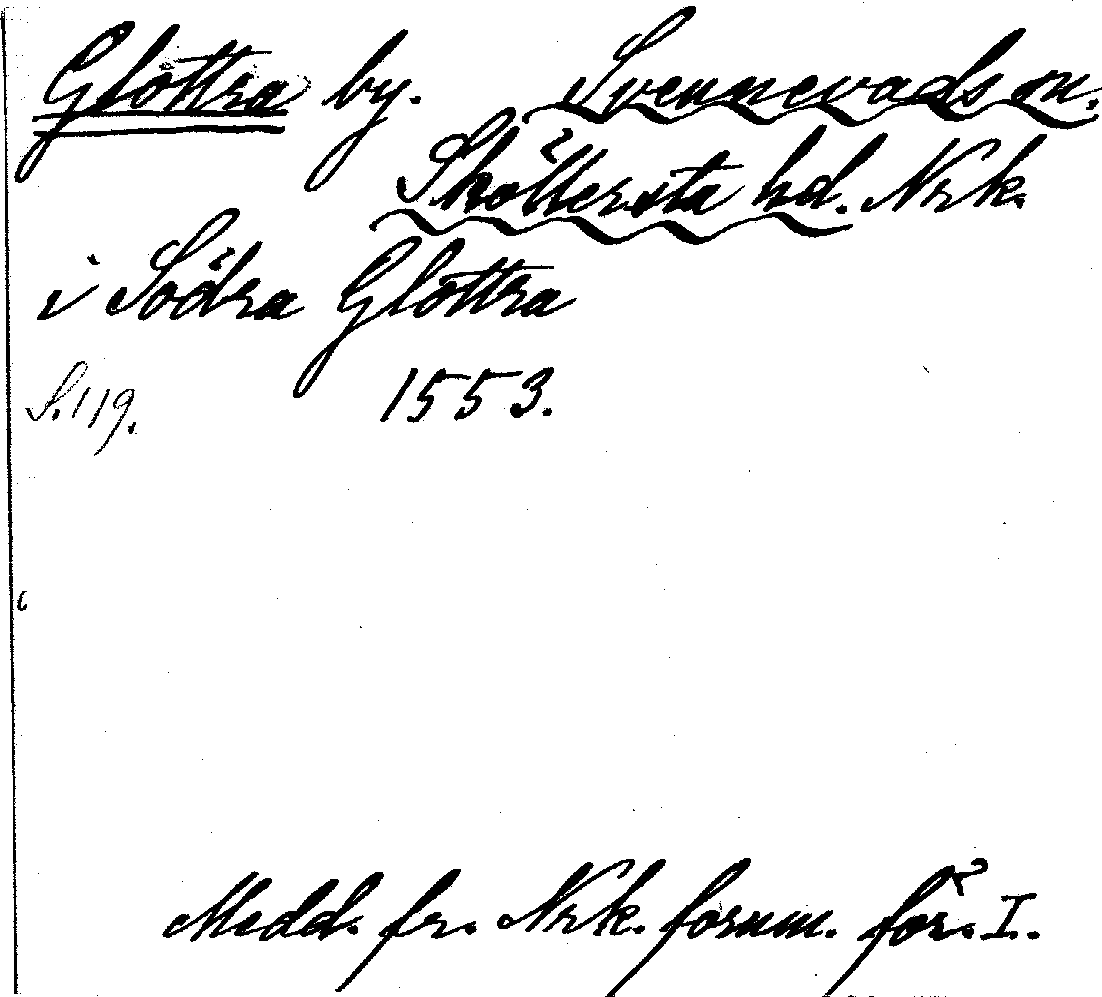 Glottra by. Svennevads sn.
Sköllersta hd. Nrk.
i Södra Glottra
S. 119. 1553.
Medd. fr. Nrk. fornm. för. I.